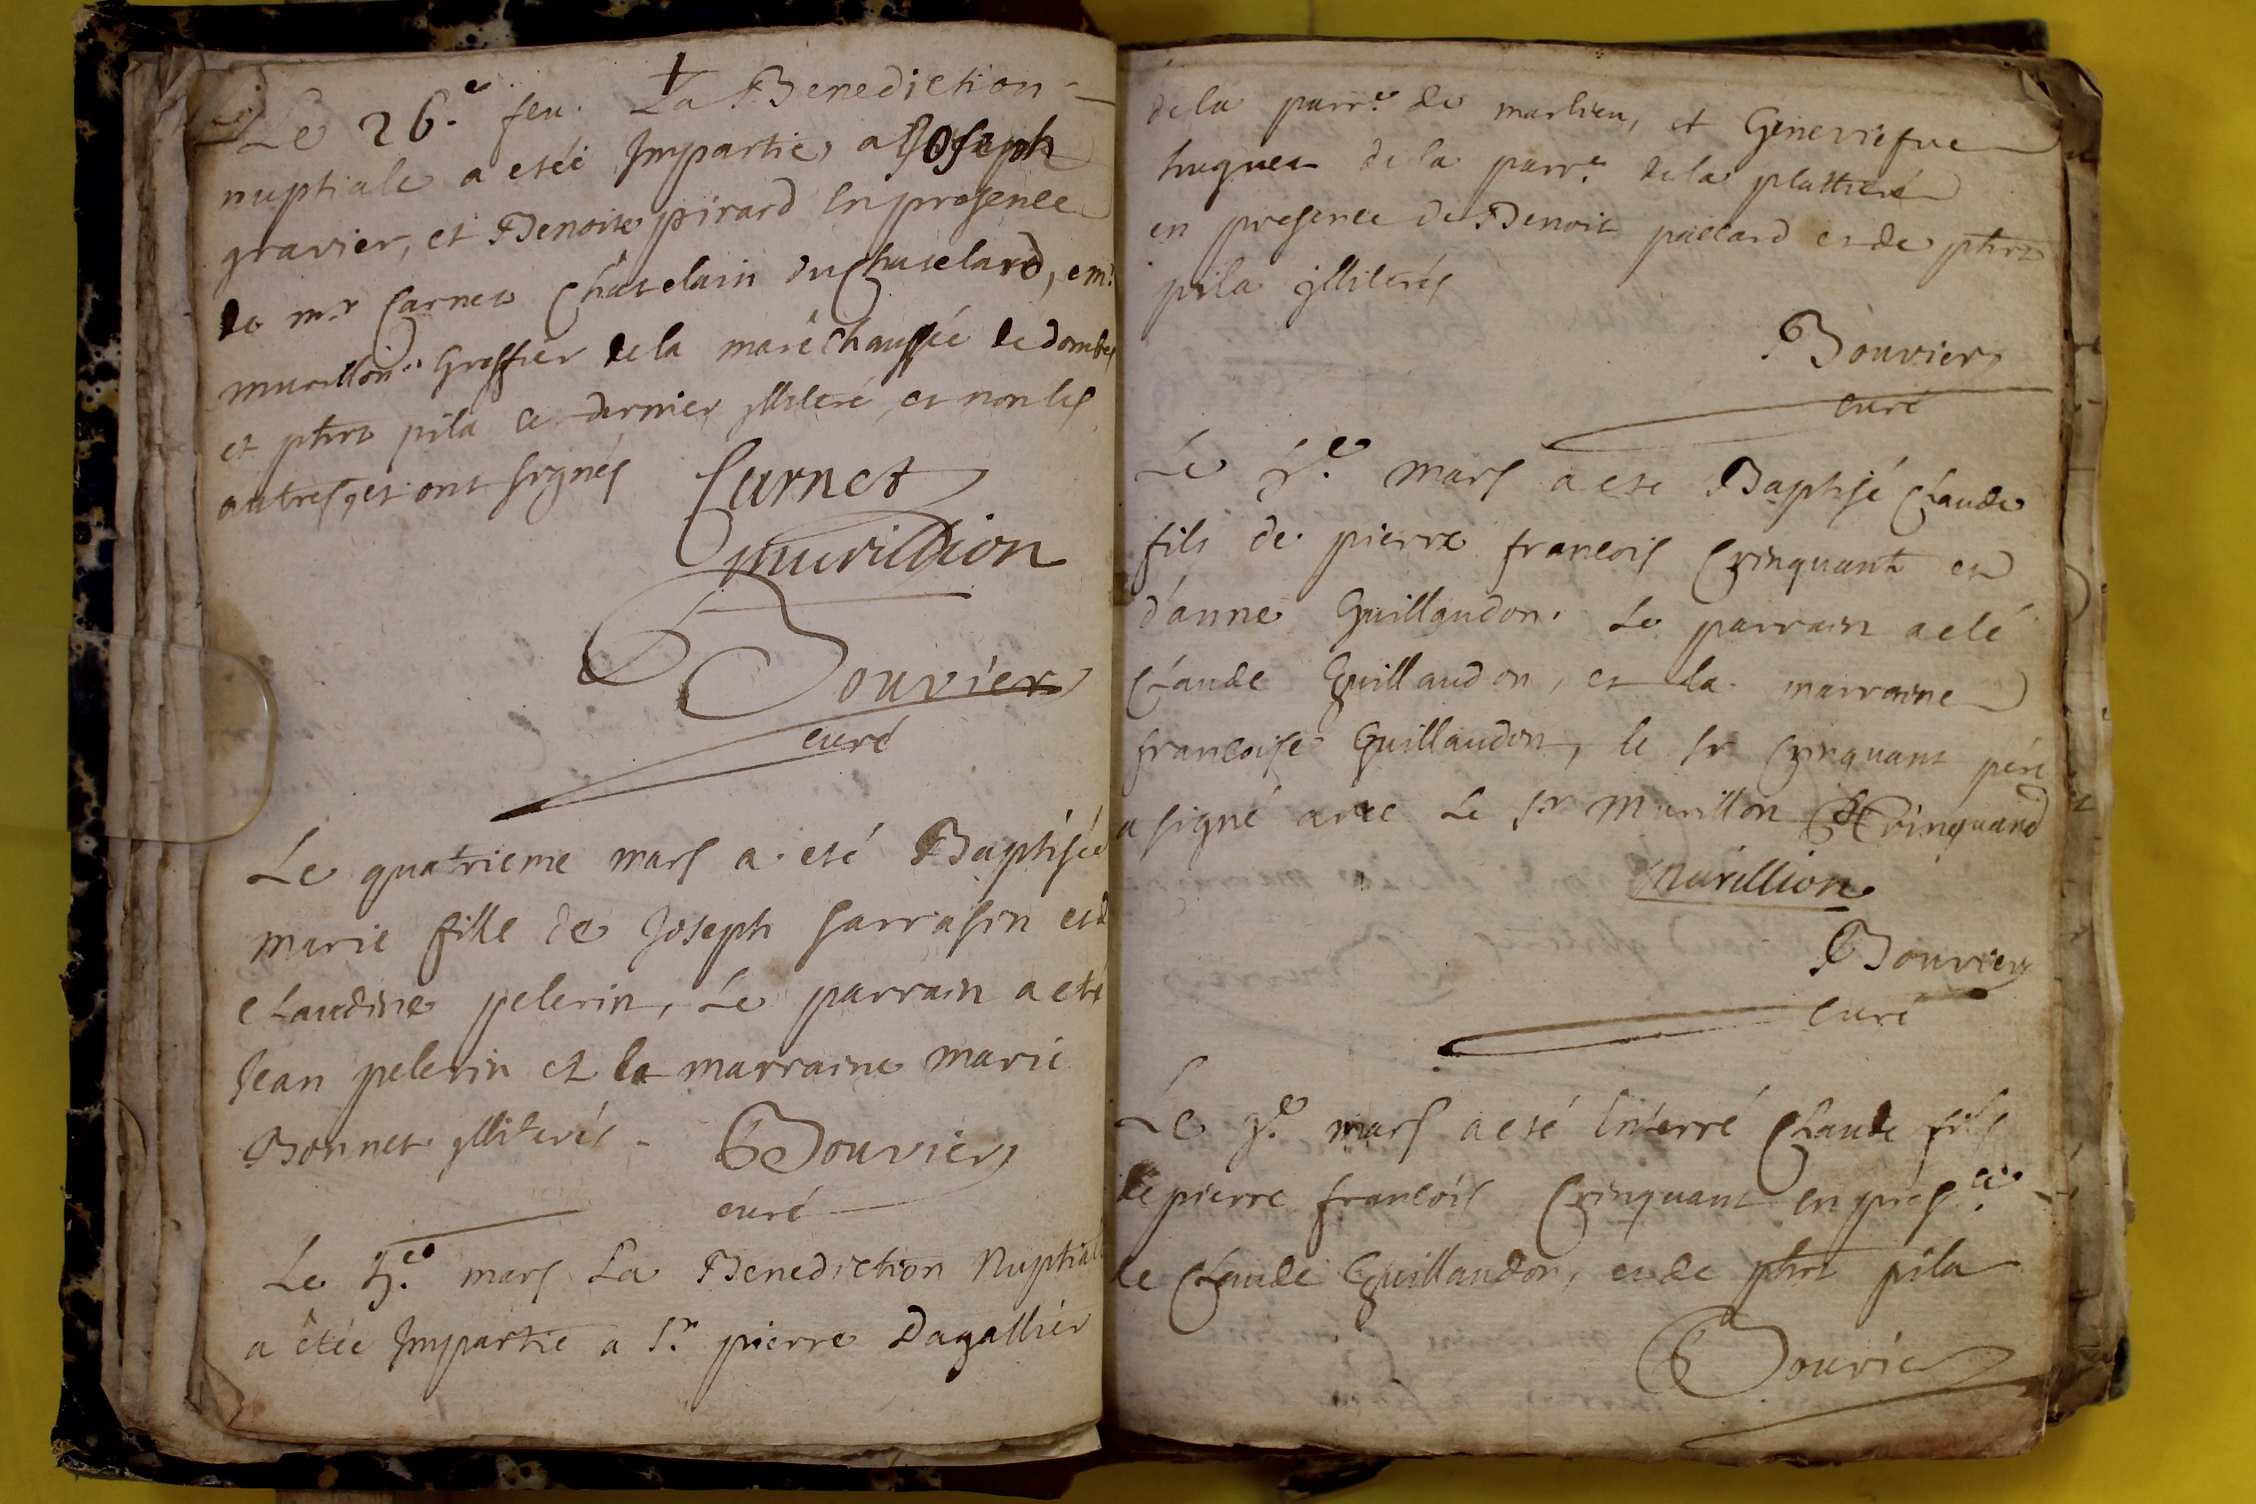 Le 26.e feu. La Benediction
nuptiale a etéé Impartie, a Joseph
gravier, et Benoite pirard en presence
de m.r Carnet Châtelain du Chatelard, e m.r
murillon Greffier de la marêchaussée de dombes
et phrt pila ce dernier jlliteré, et non les
autres qui ont signés Carnet
Murillion
Bouvier
curé
Le quatrieme mars a eté Baptisée
marie fille de Joseph Sarrasin et de
claudine pelerin, Le parrain a eté
Jean pelerin et la marraine marie
Bonnet jlliterés. Bouvier
curé
Le 5.e mars La Benediction Nuptiale
a êtée Impartie a S.r pierre Dagallier
de la parr.e de marlieu, et Genevriefve
hugues de la parr.e de la plattiere
en presence de Benoit paccard et de phrt
pila jlliterés
Bouvier
curé
Le mars a ete Baptisé Claude
fils de pierre francois Crinquant et
d'anne Guillaudon. Le parrain a eté
Claude Guillaudon, et la marraine
francoise Guillaudon, le sr Crinquant pere
a signé avec Le S.r Murillon Crinquand
Murillion
Bouvier
curé
Le mars a eté Enterré Claude fils
de pierre francois Crinquant en pres.ce
de Claude Guillaudon, et de phrt pila
Bouvier